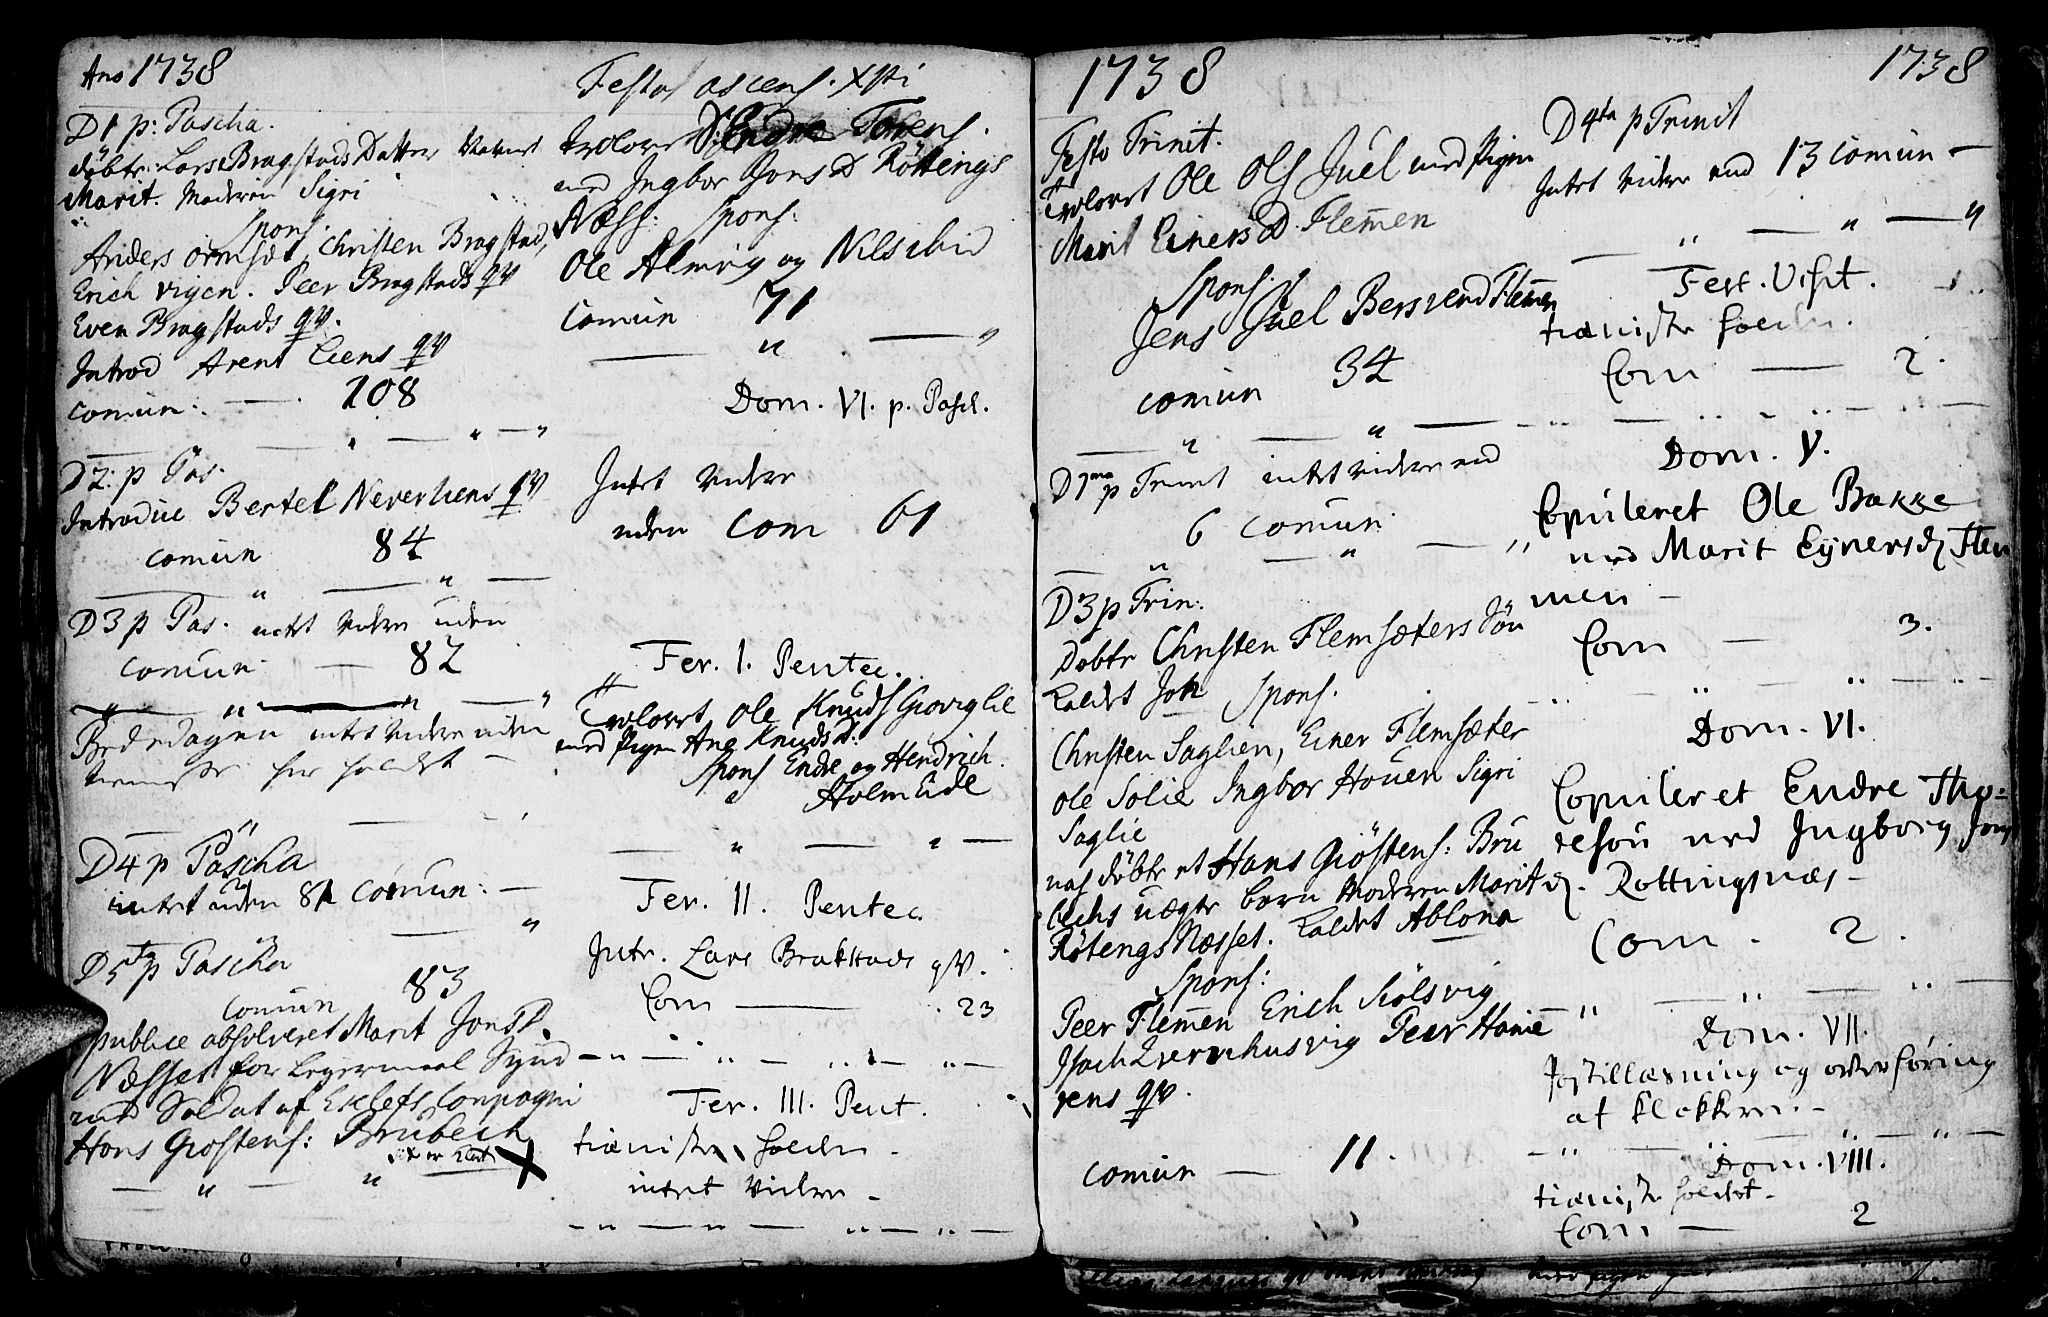 Ano 1738
D1 p: Pascha.
döbtr: Lars Bragstads Datter
Marit. Moderen Sigri
Spons.
Anders ormsæt, Christen Bragstad,
Erich vigen. Peer Bragstads qv
Even Bragstads qv.
Introd Arent Liens qv
comun: — 108
D2: p Pas.
Introduc Bertel Neverliens qv
comun 84
D3 p Pas. intet videre uden
comun — 82
Bededagen intet videre uden
holdet —
D4 p Pascha
intet uden 81 comun: —
D5ta p Pascha
comun 83
publice absolveret Marit Jons D.
Næsset for Legermaal
med Soldat af Compagni
Hans Giöstens: Brubech
X
Festo ascens. Xsti
Trolovet S: Endre Torens.
med Ingbor Jons D Röttings
Næss: Spons:
Ole Almvig og Nils ibid
comun 71
Dom. VI. p. Pasch.
Intet videre
uden Com 61
Fer. I. Pentec.
Trolovet Ole Knuds Giöviglie
med Pigen Ane Knuds D.
Spons Endre og Hendrich
Holm Eide
Fer. II. Pentec.
Intr. Lars Brakstads qv.
Com — 23
Fer. III. Pent.
tieniste holden —
intet videre —
1738
Festo Trinit.
Trolovet Ole Ols Juel med Pigen
Marit Einers D. Flemen
Spons.
Jens Juel Bersvend Flemen
comun 34
D1ma p Trinit intet videre end
6 comun
D3 p Trin:
Döbtr Christen Flemsæters Sön
kaldet Joh Spons.
Christen Saglien, Einer Flemsæter
Ole Solie Ingbor Houen Sigri
Saglie
nok döbt et Hans Giöstens: Bru
bechs uægte barn Moderen Marit
Rötengs Næsset. kaldet Ablona
Spons:
Peer Flemen Erich Siölsvig
Isach Peer Hanie
rens qv.
comun — 11.
1738
D4ta p Trinit
Intet videre end 13 comun —
Fest. Visit.
tieniste holden.
Com — 2.
Dom. V.
Copuleret Ole Bakke
med Marit Eynersd. Flem
men —
Com — 3.
Dom. VI.
Copuleret Endre Tho=
resøn med Ingborg Jons
d. Rottingsnæs —
Com . 2.
Dom. VII.
Postillæsning og overhøring
af klokkeren. —
Dom. VIII.
tieniste holdet —
Com — 2